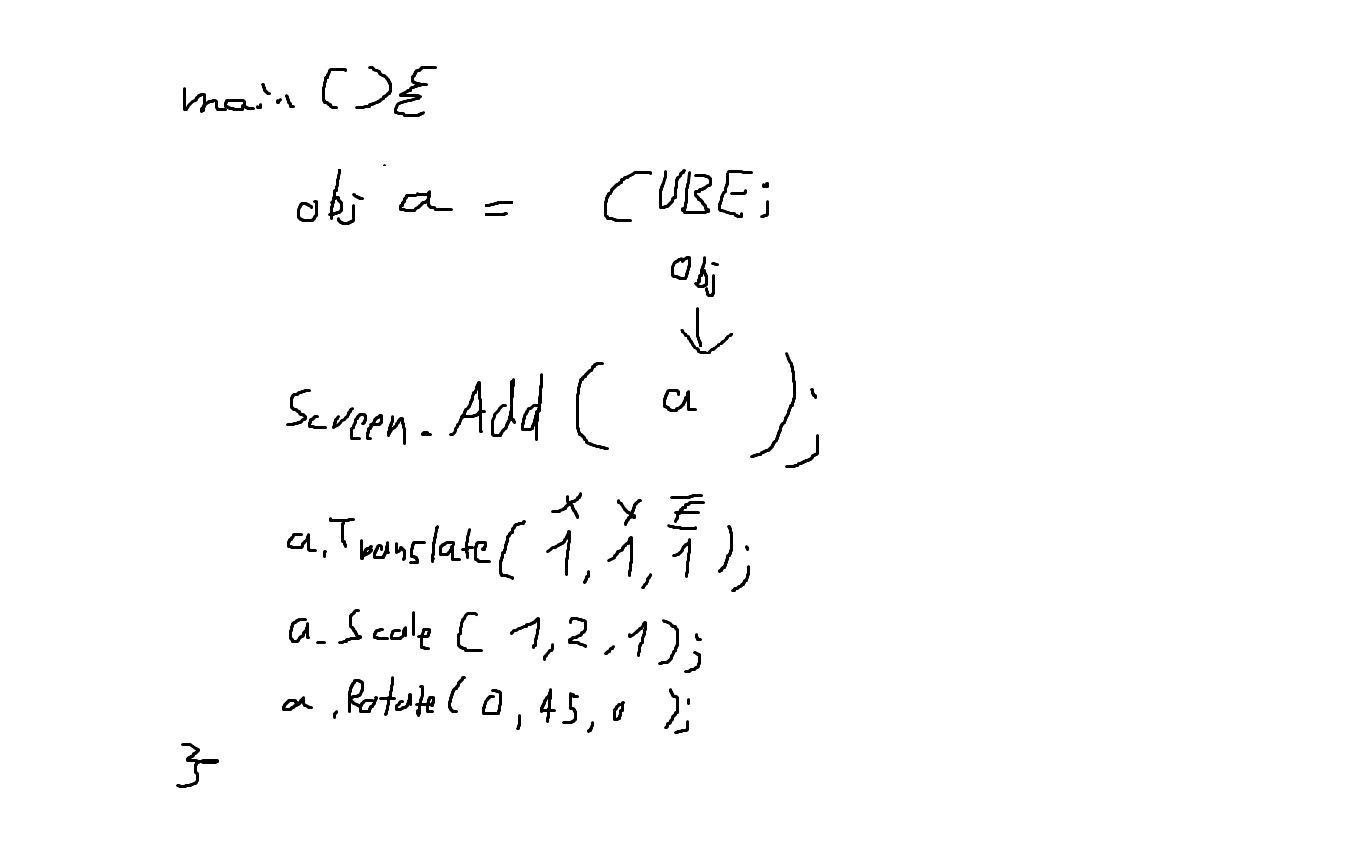 main(){
obj a = CUBE;
obj
Screen.Add( a );
x y z
a.Translate( 1, 1, 1 );
a.Scale( 1,2,1);
a.Rotate( 0, 45, 0 );
}